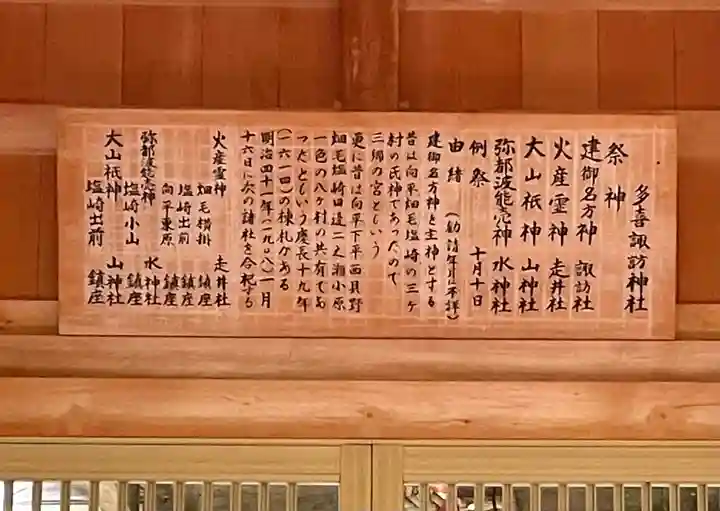 多喜諏訪神社
祭神
建御名方神 諏訪社
火産霊神 走井社
大山祇神 山神社
弥都波能売神 水神社
例祭 十月十日
由緒 (勧請年月不詳)
建御名方神を主神とする
昔は向平畑毛塩崎の三ヶ
村の氏神であったので
三郷の宮ともいう
更に昔は向平下平西貝野
畑毛塩崎田邊二之瀬小原
一色の八ヶ村の共有であ
ったともいう慶長十九年
(一六一四)の棟札がある
明治四十一年(一九〇八)一月
十六日に次の諸社を合祀する
火産霊神 走井社
畑毛横掛 鎮座
塩崎出前 鎮座
向平東原 鎮座
弥都波能売神 水神社
塩崎小山 鎮座
大山祇神 山神社
塩崎出前 鎮座